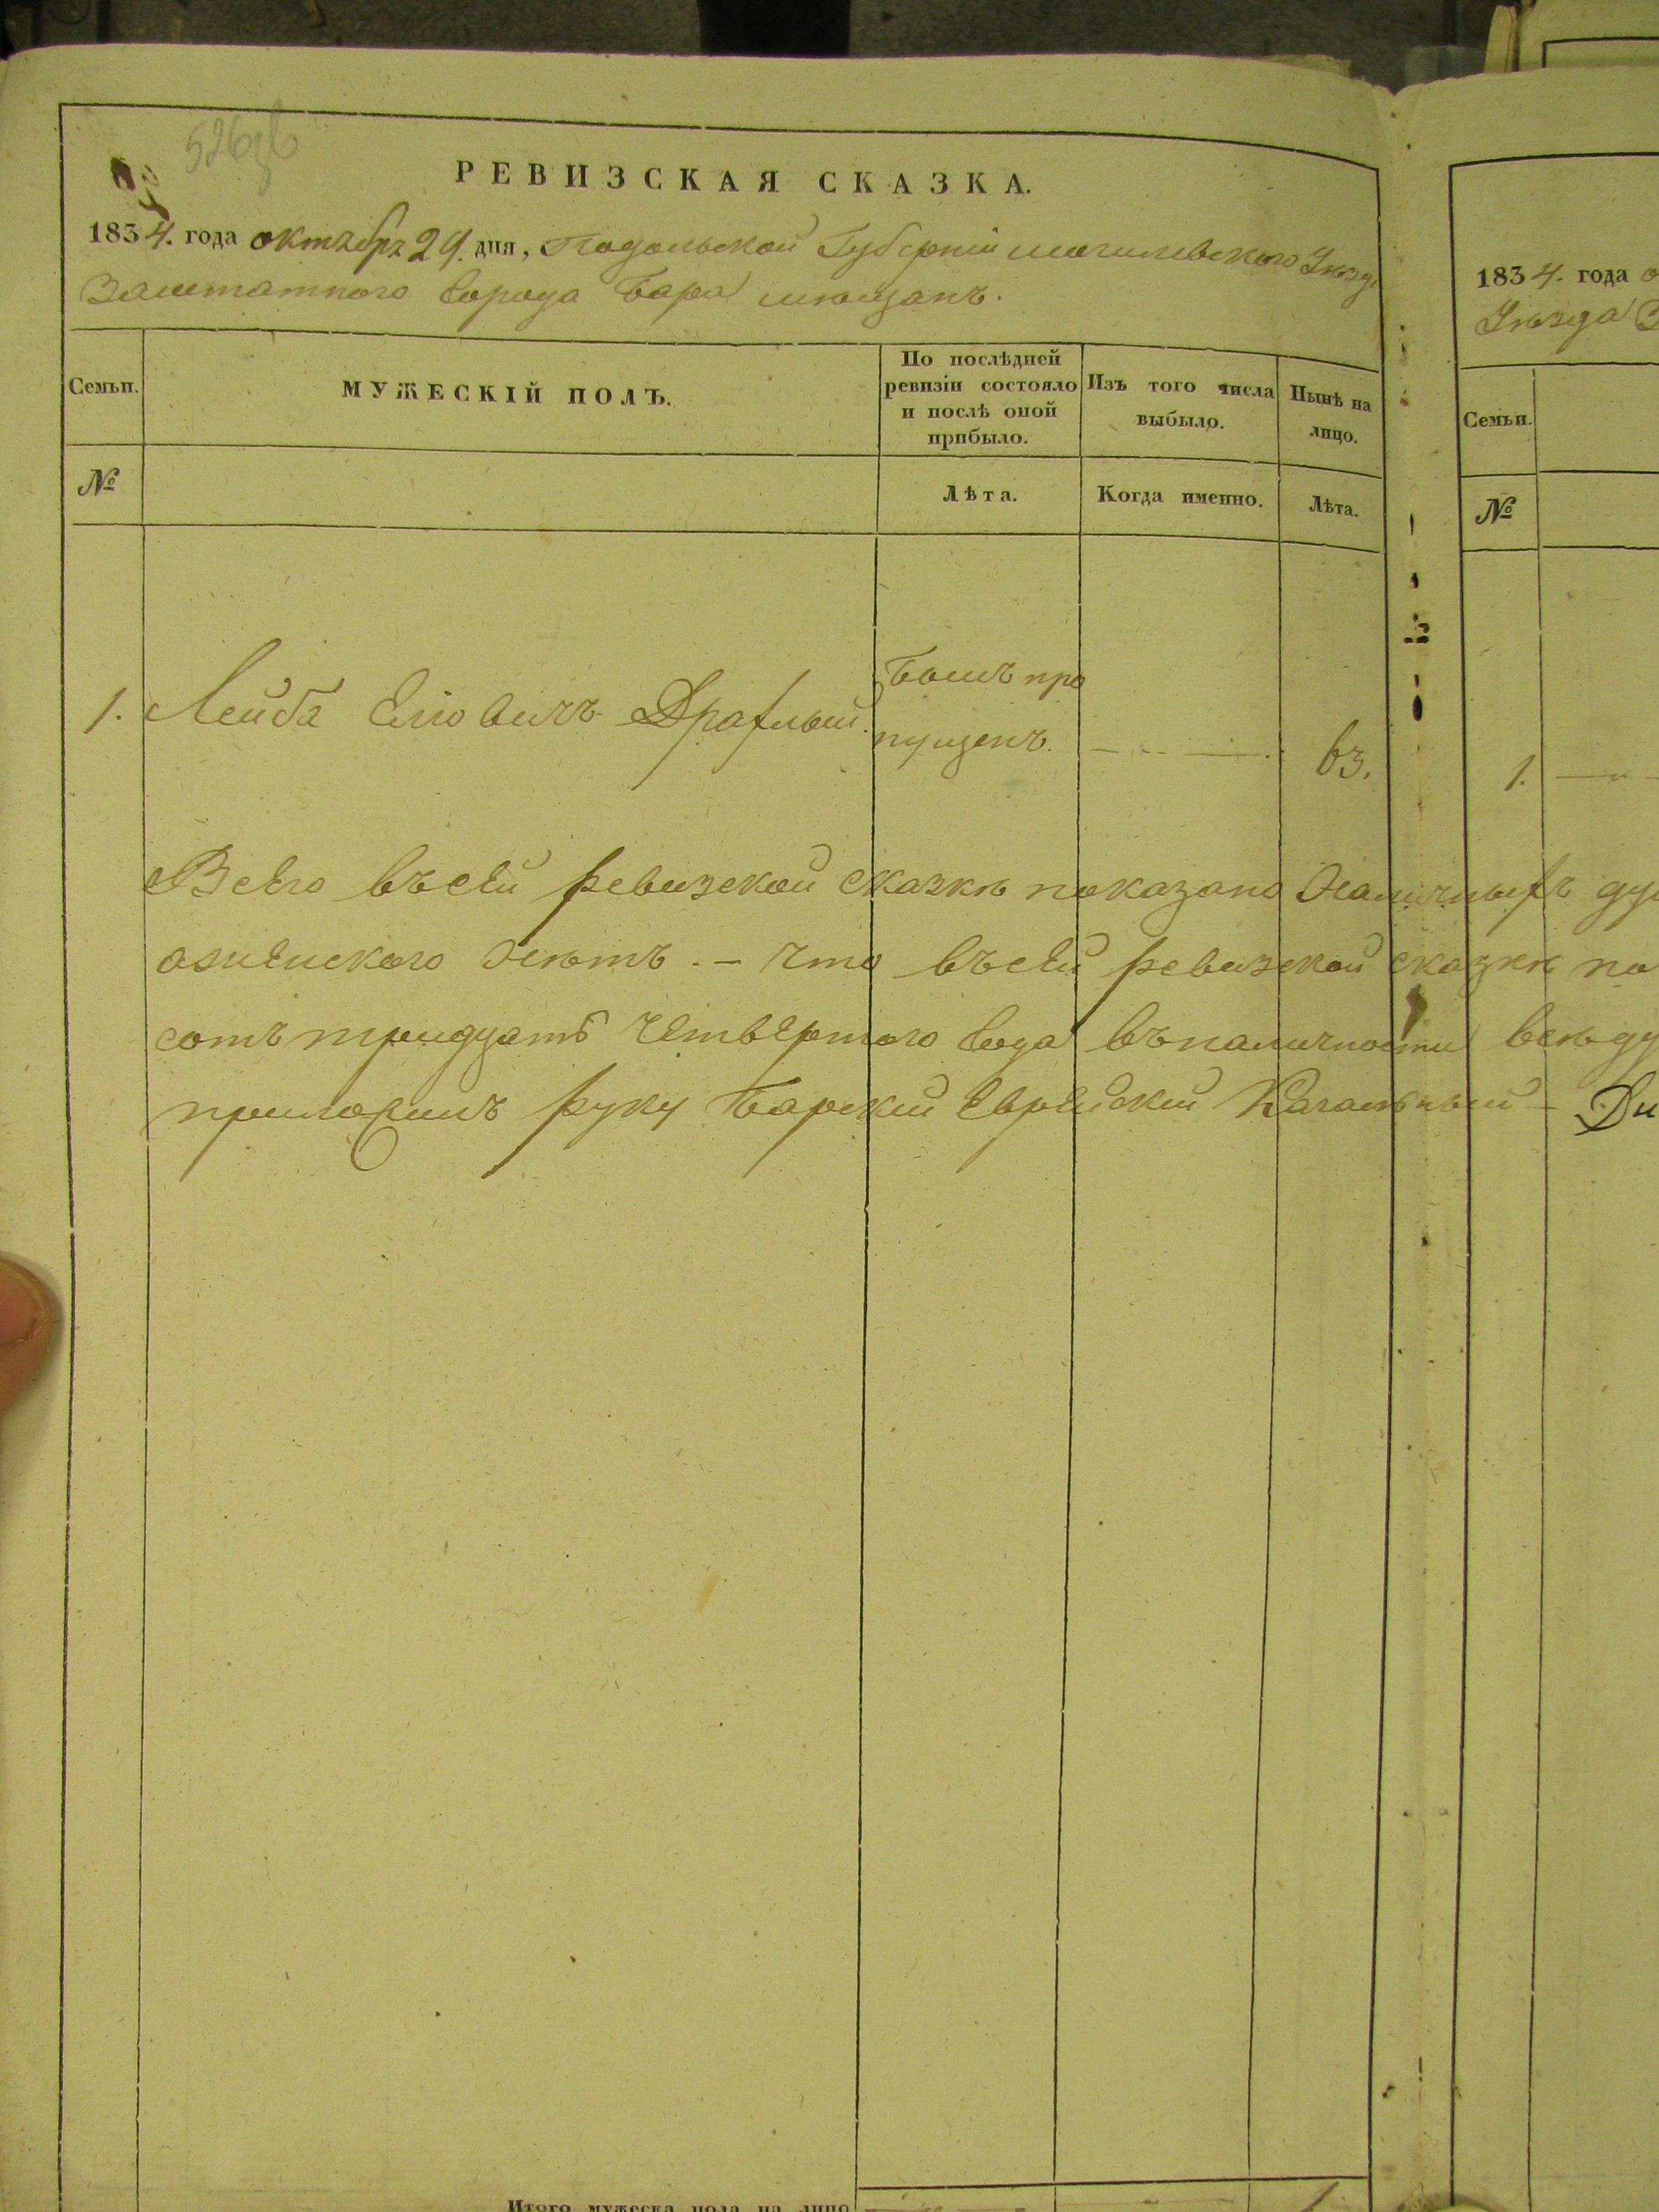 РЕВИЗСКАЯ СКАЗКА.
1834. года октября 29. дня, Подольской Губерніи могилевского Уезда
Заштатного города Бара мещанъ.
Семьи.
МУЖЕСКІЙ ПОЛЪ.
По послѣдней
ревизіи состояло
и послѣ оной
прибыло.
Изъ того числа
выбыло.
Нынѣ на
лицо.
№
Лѣта.
Когда именно.
Лѣта.
1. Лейба Елiовичъ
Былъ про
пущенъ.
63.
Всего въсей ревизской сказкѣ показано Наличныхъ ду
женского нѣтъ. – что въсей ревизской сказкѣ по
сотъ тридцать четвертого года въналичности всѣ ду
приложилъ руку Барский Еврейский Кагальный – Ди
Итого мужеска пола на лицо
1834. года о
Уѣзда З
Семьи.
№
1.